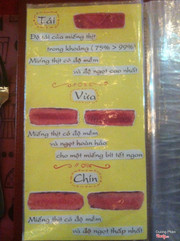 Tái
Độ tái của miếng thịt
trong khoảng (75% > 99%)
Miếng thịt có độ mềm
và độ ngọt cao nhất
Vừa
Miếng thịt có độ mềm
và ngọt hoàn hảo
cho một miếng bít tết ngon
Chín
Miếng thịt có độ mềm
và độ ngọt thấp nhất